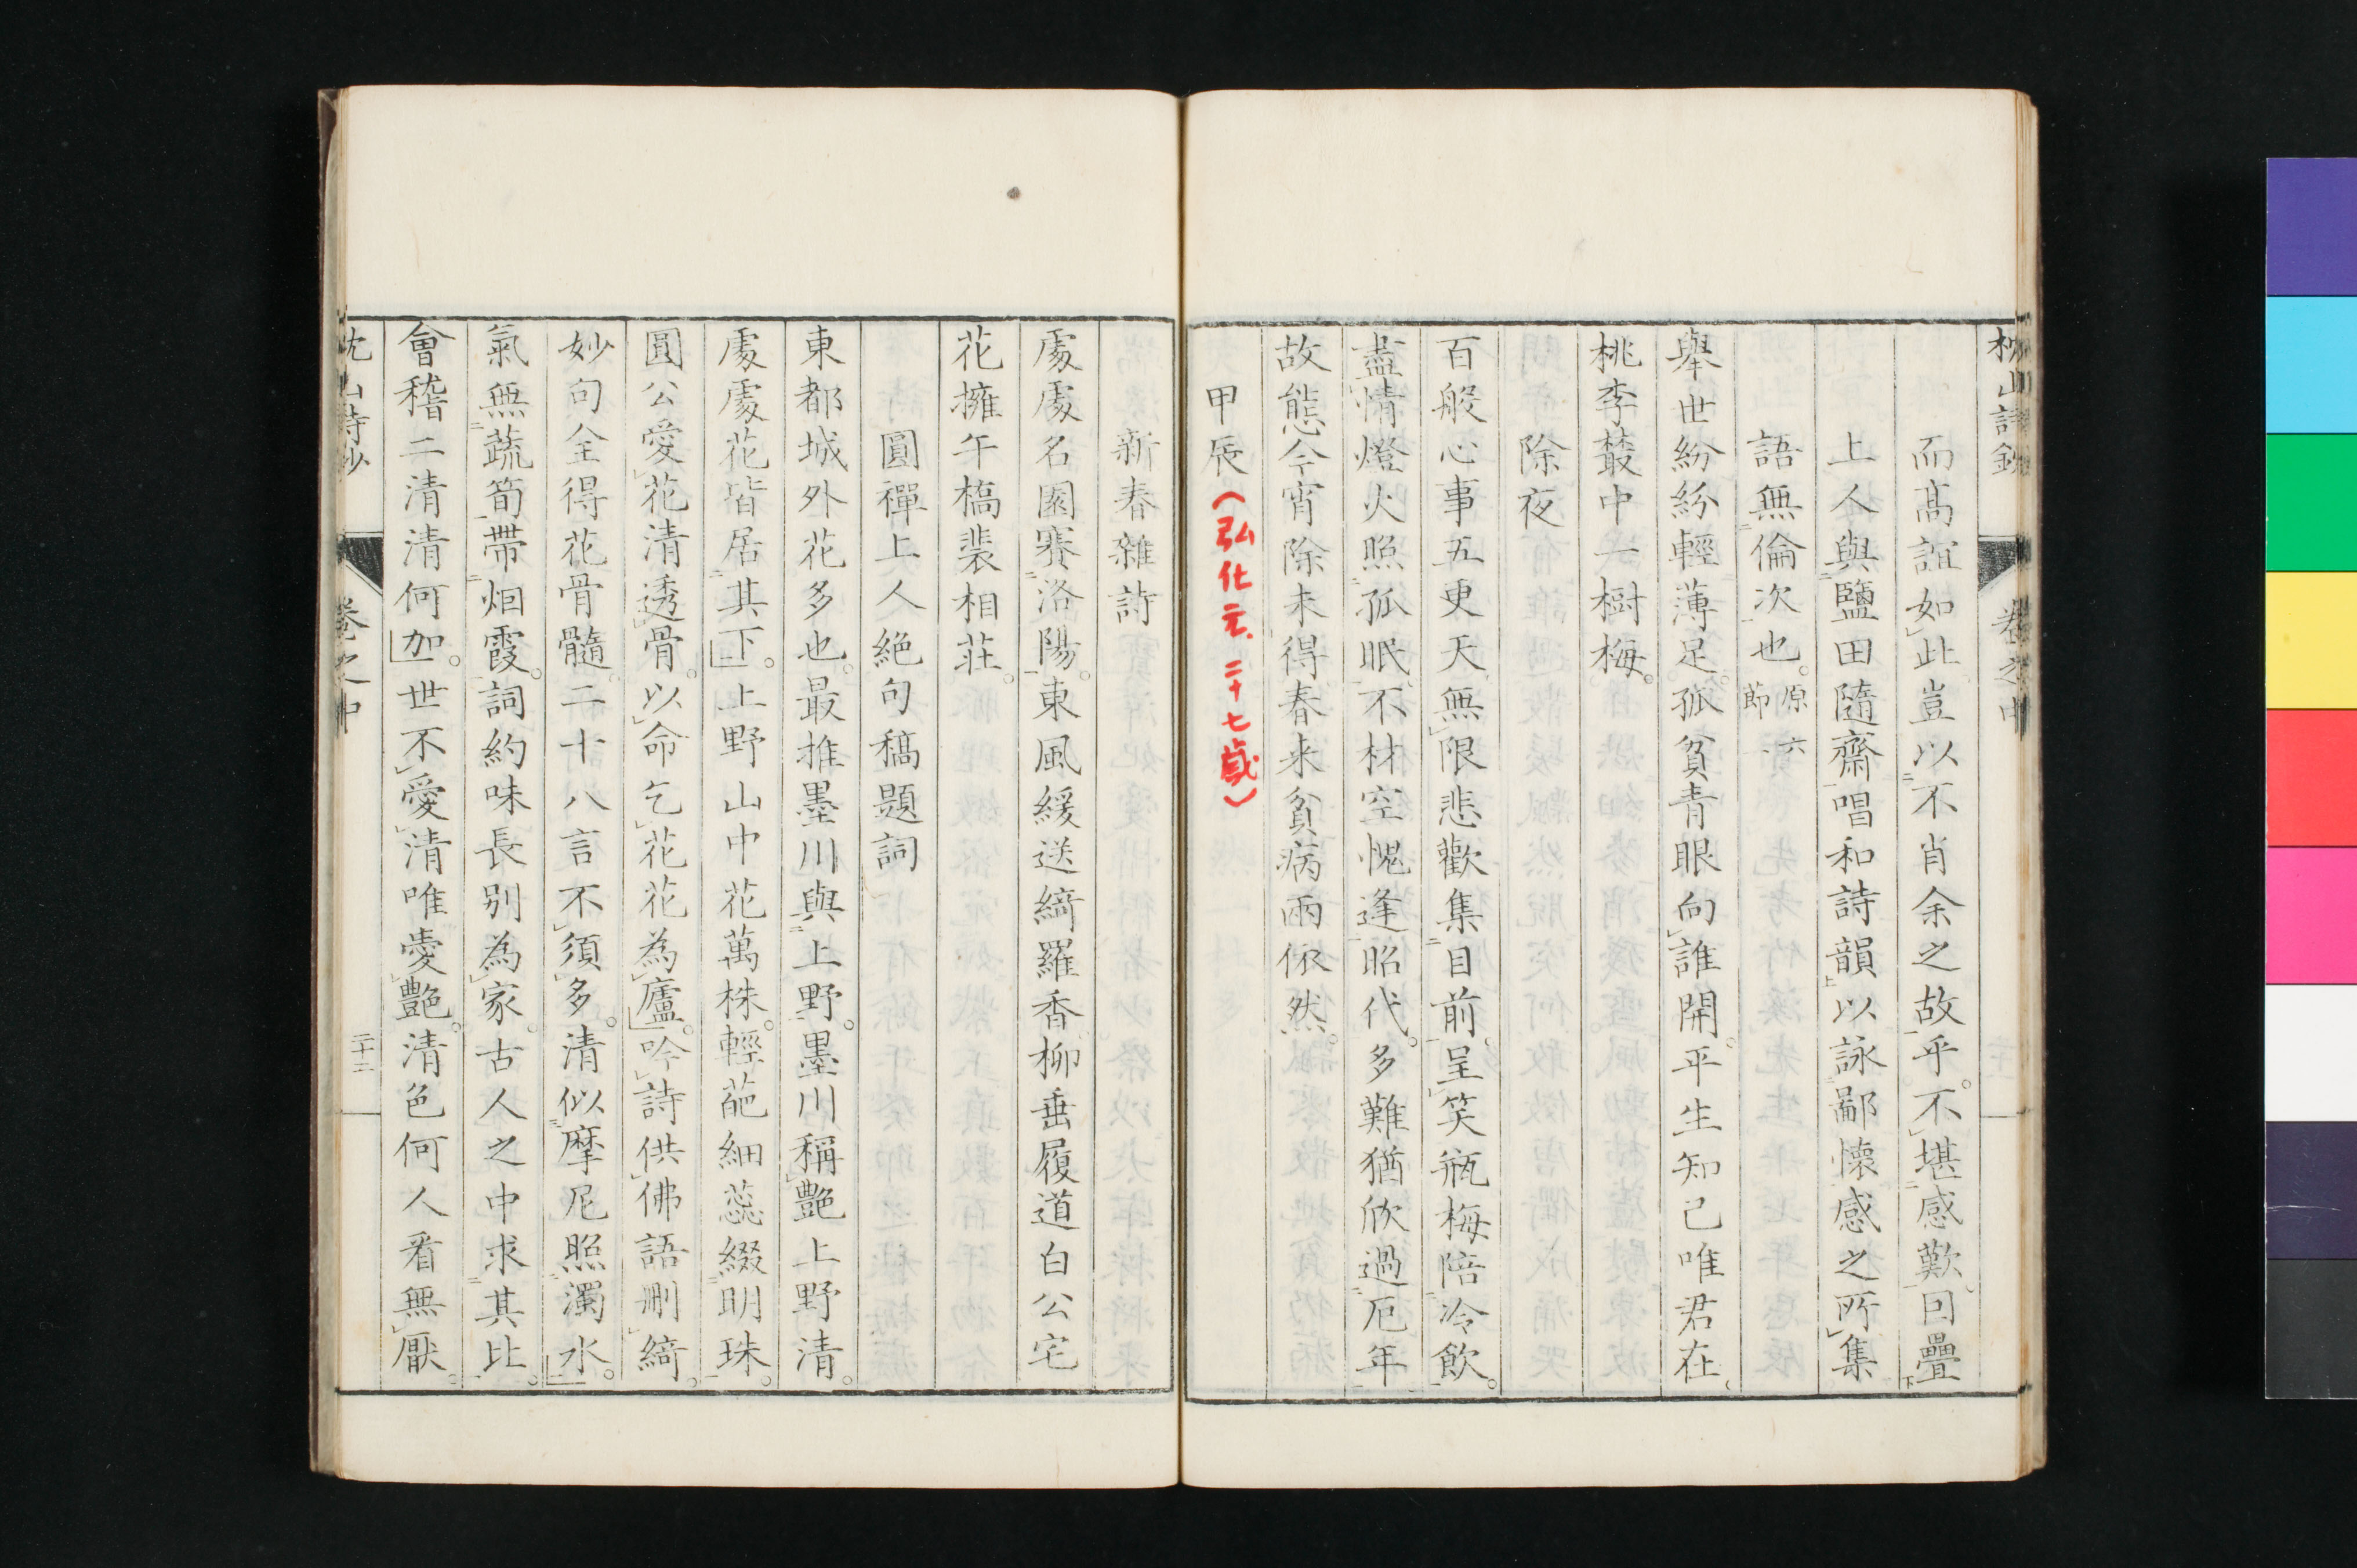 枕山詩鈔 卷之中
而高誼如此豈以不肖余之故乎不堪感歎因疊
上人與鹽田隨齋唱和詩韻以詠鄙懷感之所集
語無倫次也原六節
舉世紛紛輕薄足孤貧青眼向誰開平生知己唯君在
桃李叢中一樹梅
除夜
百般心事五更天無限悲歡集目前呈笑瓶梅陪冷飲
盡情燈火照孤眠不材空愧逢昭代多難猶欣過厄年
故態今宵除未得春来貧病兩依然
甲辰
(弘化元、二十七歳)
新春雜詩
處處名園賽洛陽東風緩送綺羅香柳垂履道白公宅
花擁午橋裴相莊
圓禪上人絶句稿題詞
東都城外花多也最推墨川與上野墨川稱艷上野清
處處花皆居其下上野山中花萬株輕葩細蕊綴明珠
圓公愛花清透骨以命乞花花為廬吟詩供佛語刪綺
妙句全得花骨髓二十八言不須多清似摩尼照濁水
氣無蔬筍帶烟霞詞約味長别為家古人之中求其比
會稽二清清何加世不愛清唯愛艷清色何人看無厭
枕山詩鈔 卷之中 二十二